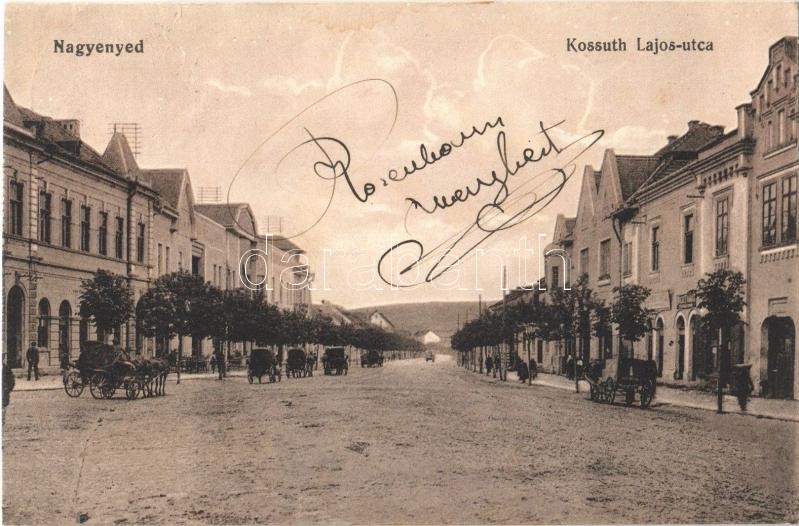 Nagyenyed
Kossuth Lajos-utca
Rosenbaum
darabanth